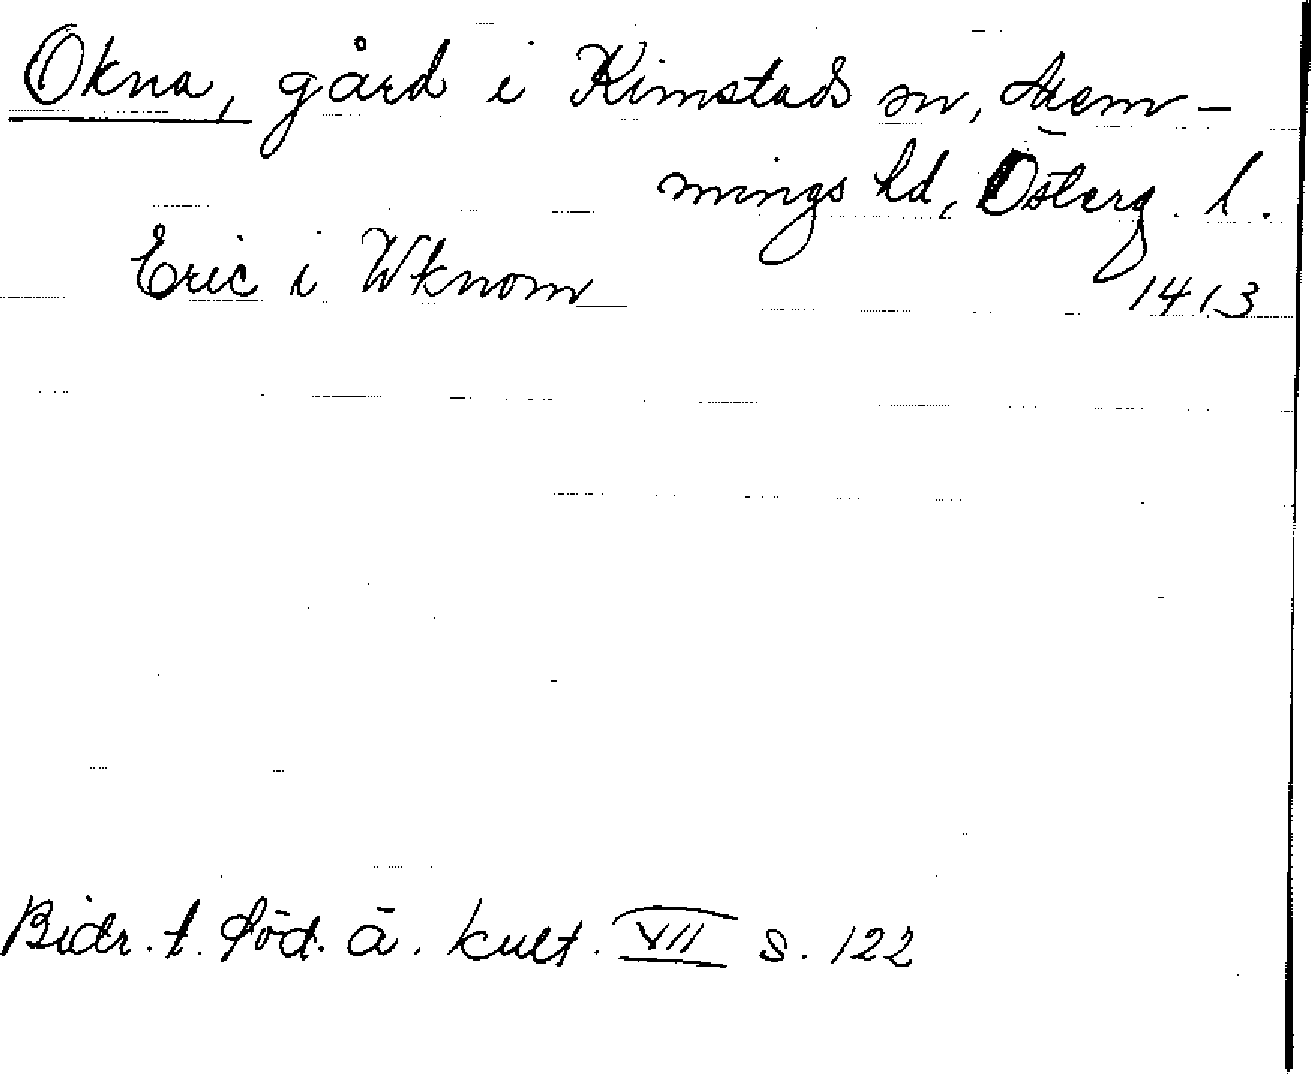 Okna, gård i Kimstads sn, Mem-
mings hd, Österg. l.
Eric i Wknom 1413
Bidr. t. Söd. ä. kult. VII s. 122